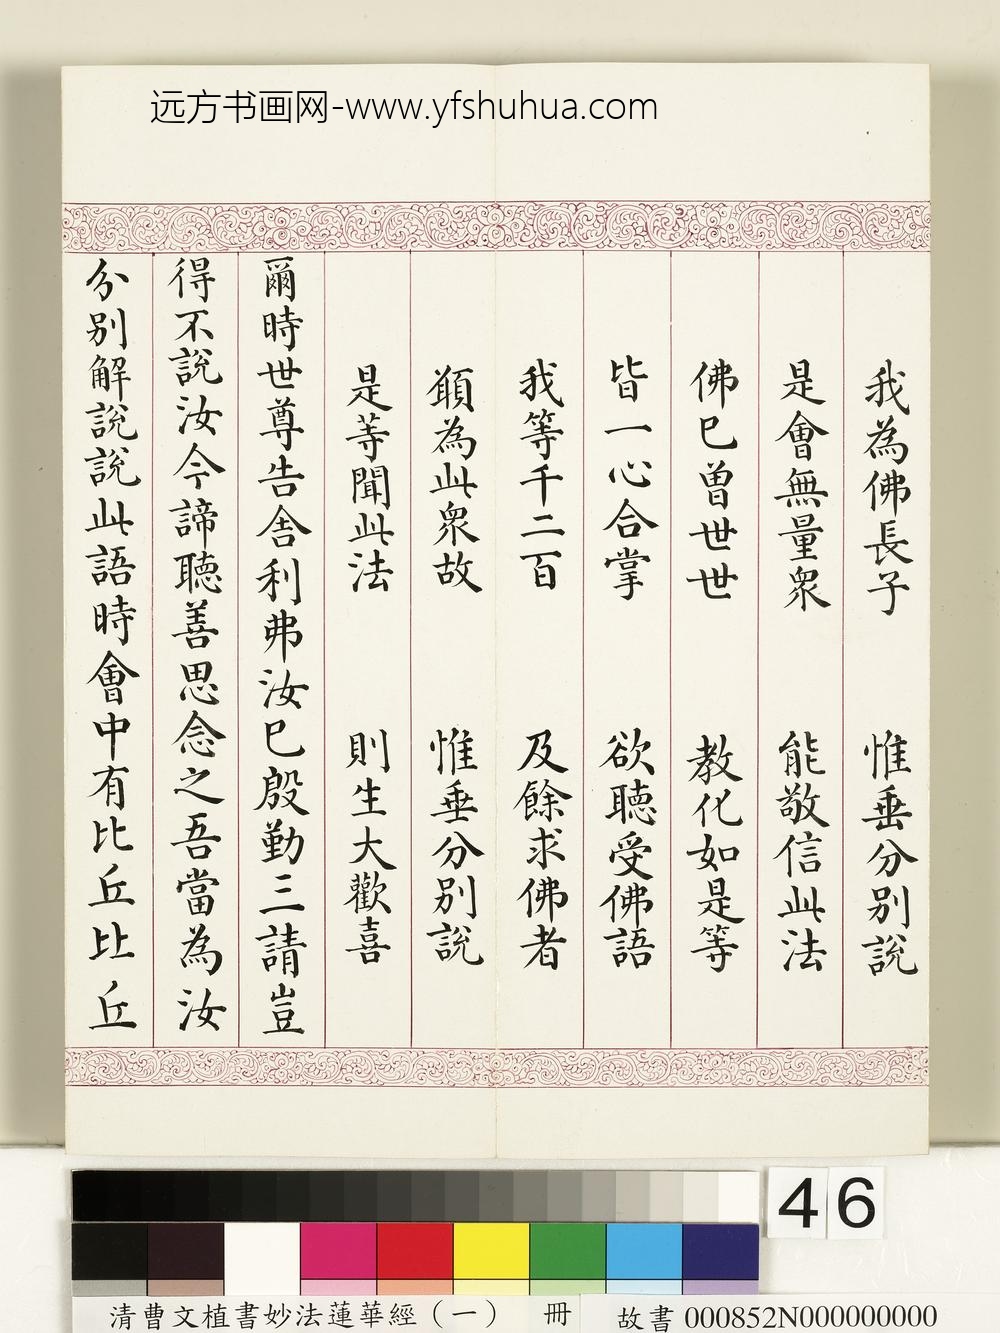 远方书画网-www.yfshuhua.com
我為佛長子　惟垂分別說
是會無量眾　能敬信此法
佛已曾世世　教化如是等
皆一心合掌　欲聽受佛語
我等千二百　及餘求佛者
願為此眾故　惟垂分別說
是等聞此法　則生大歡喜
爾時世尊告舍利弗汝已殷勤三請豈
得不說汝今諦聽善思念之吾當為汝
分別解說說此語時會中有比丘比丘
46
清曹文植書妙法蓮華經（一）　冊　故書000852N000000000